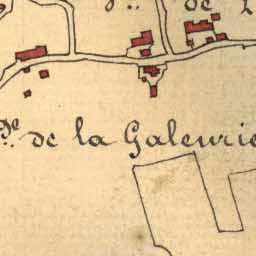 de
de la Galeurie